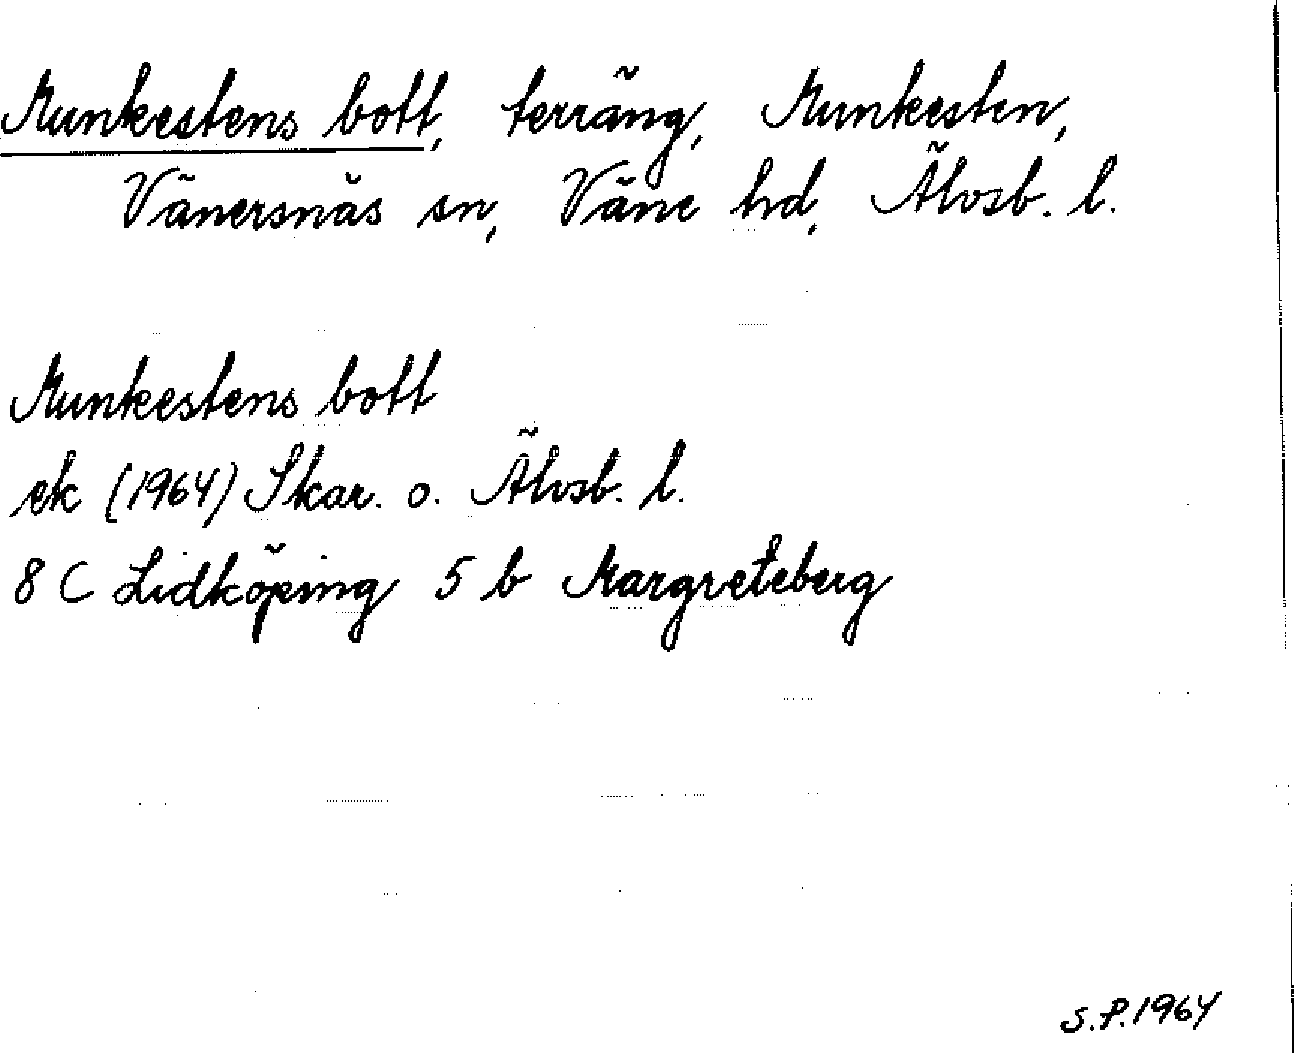 Munkestens bott, terräng, Munkesten,
Vänersnäs sn, Väne hd, Älvsb. l.
Munkestens bott
ek (1964) Skar. o. Älvsb. l.
8 C Lidköping 5 b Margreteberg
S.P. 1964